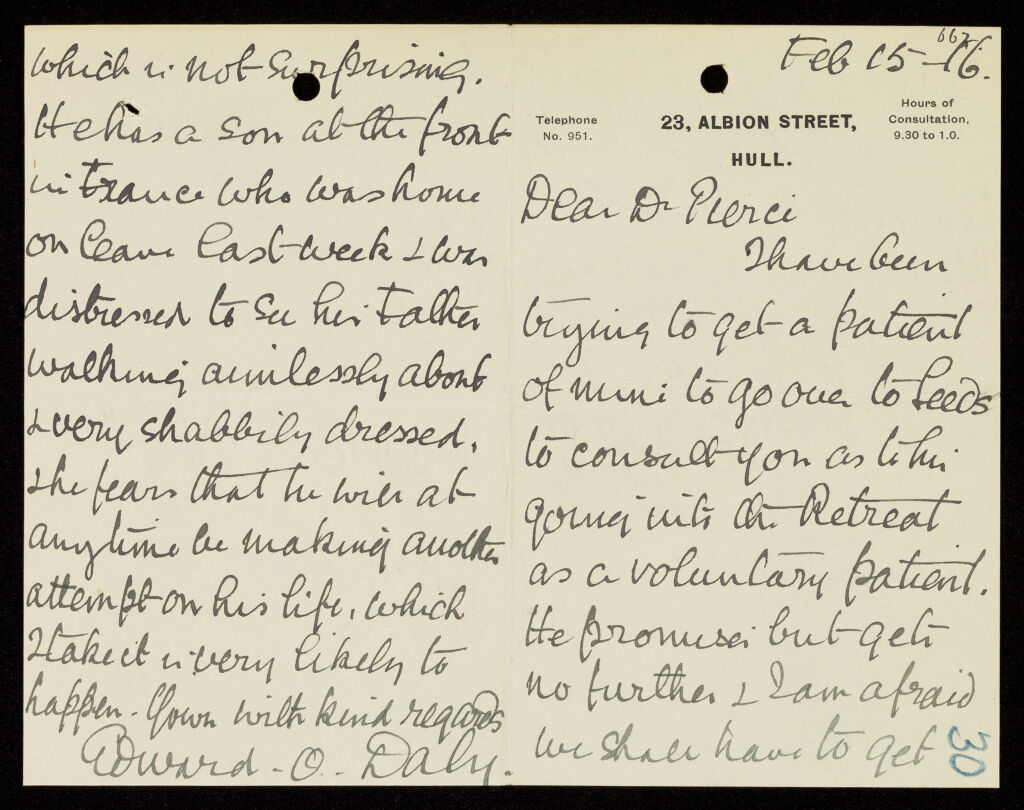 667
Feb 15-16.
Telephone
No. 951.
23, ALBION STREET,
HULL.
Hours of
Consultation,
9.30 to 1.0.
Dear Dr Pierce
I have been
trying to get a patient
of mine to go over to Leeds
to consult you as to his
going into the Retreat
as a voluntary patient.
He promises but gets
no further & I am afraid
we shall have to get
30
which is not surprising.
He has a son at the front
in France who was home
on leave last week & was
distressed to see his Father
walking aimlessly about
& very shabbily dressed.
She fears that he will at
anytime be making another
attempt on his life, which
I take it is very likely to
happen. Yours with kind regards
Edward. O. Daly.